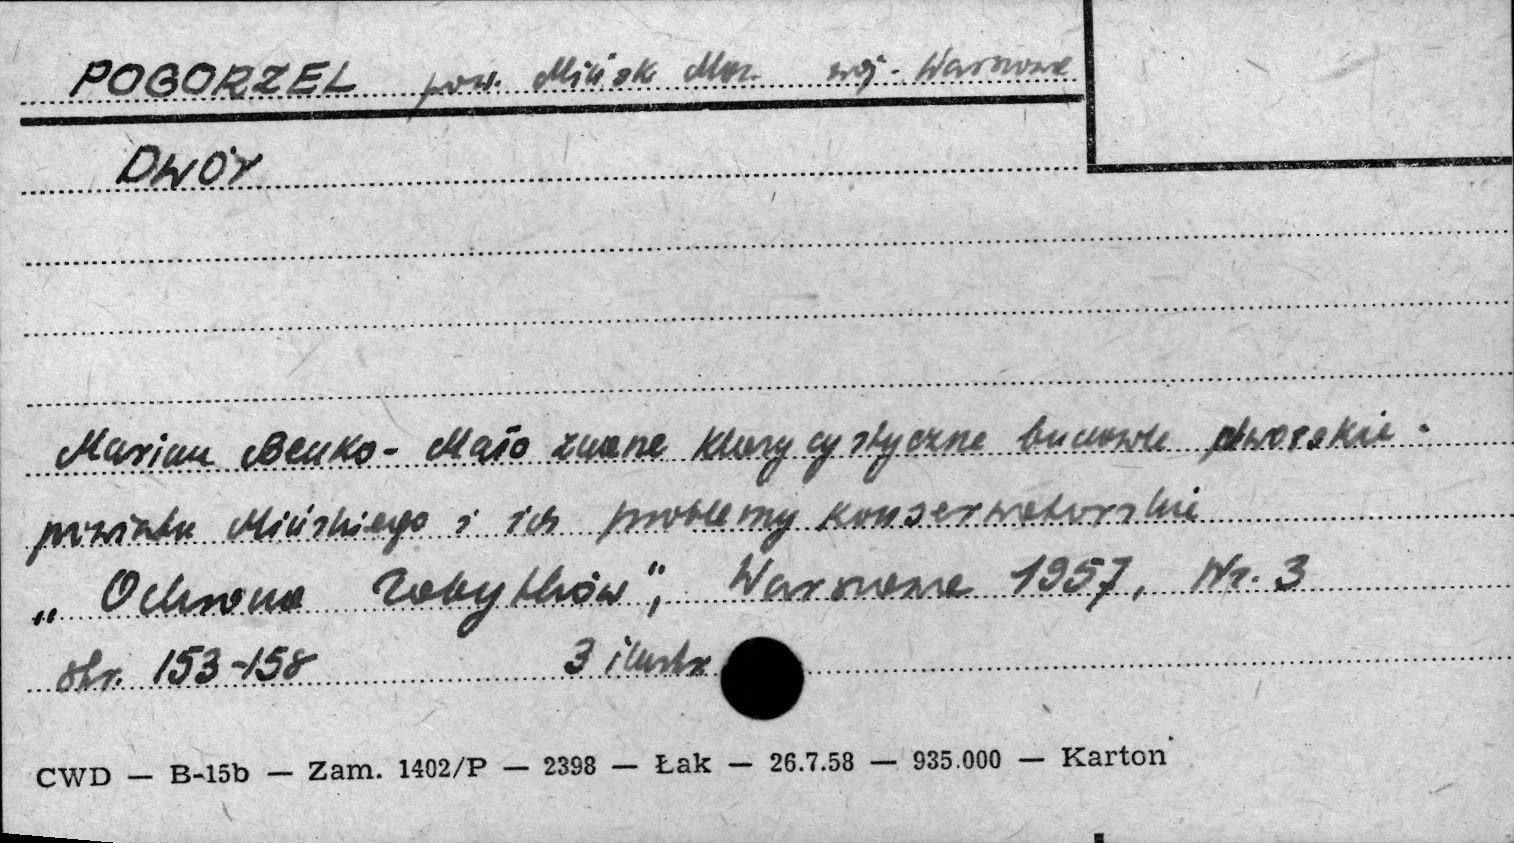 POGORZEL pow. Mińsk Maz. woj. Warszawa
DWÓR
Marian Benko - Mało znane klasycystyczne budowle dworskie
powiatu Mińskiego i ich problemy konserwatorskie
„Ochrona Zabytków", Warszawa 1957, Nr. 3
str. 153-158 3 ilustr
CWD — B-15b — Zam. 1402/P — 2398 — Łak — 26.7.58 — 935.000 — Karton